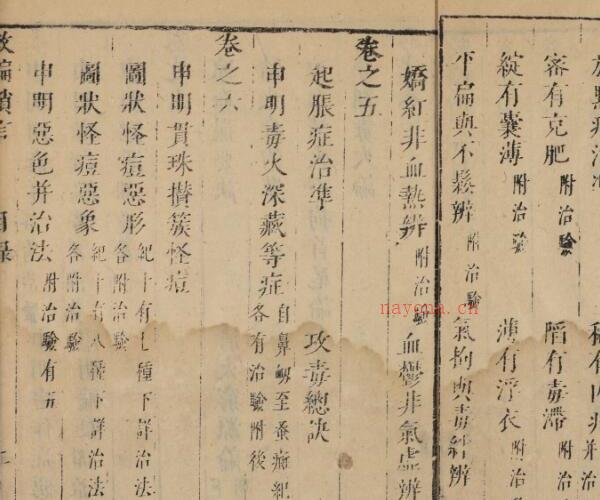 審有克肥 附治驗 陷有毒滯
綻有囊薄 附治驗 薄有浮衣 附治
平扁與不鬆辨 附治驗 氣拘與毒結辨
嬌紅非血熱辨 附治驗 血鬱非氣虛辨
卷之五
起脹症治準 攻毒總訣
申明毒火深藏等症 自鼻衄至蚤癍紀
各有治驗附後
卷之六
申明貫珠攢簇怪痘
圖狀怪痘惡形 紀十有七種下詳治法
各附治驗
圖狀怪痘惡象 紀十有八種下詳治法
各附治驗
申明惡色并治法 附治驗有五
救偏瑣言 目錄
nayona.cn